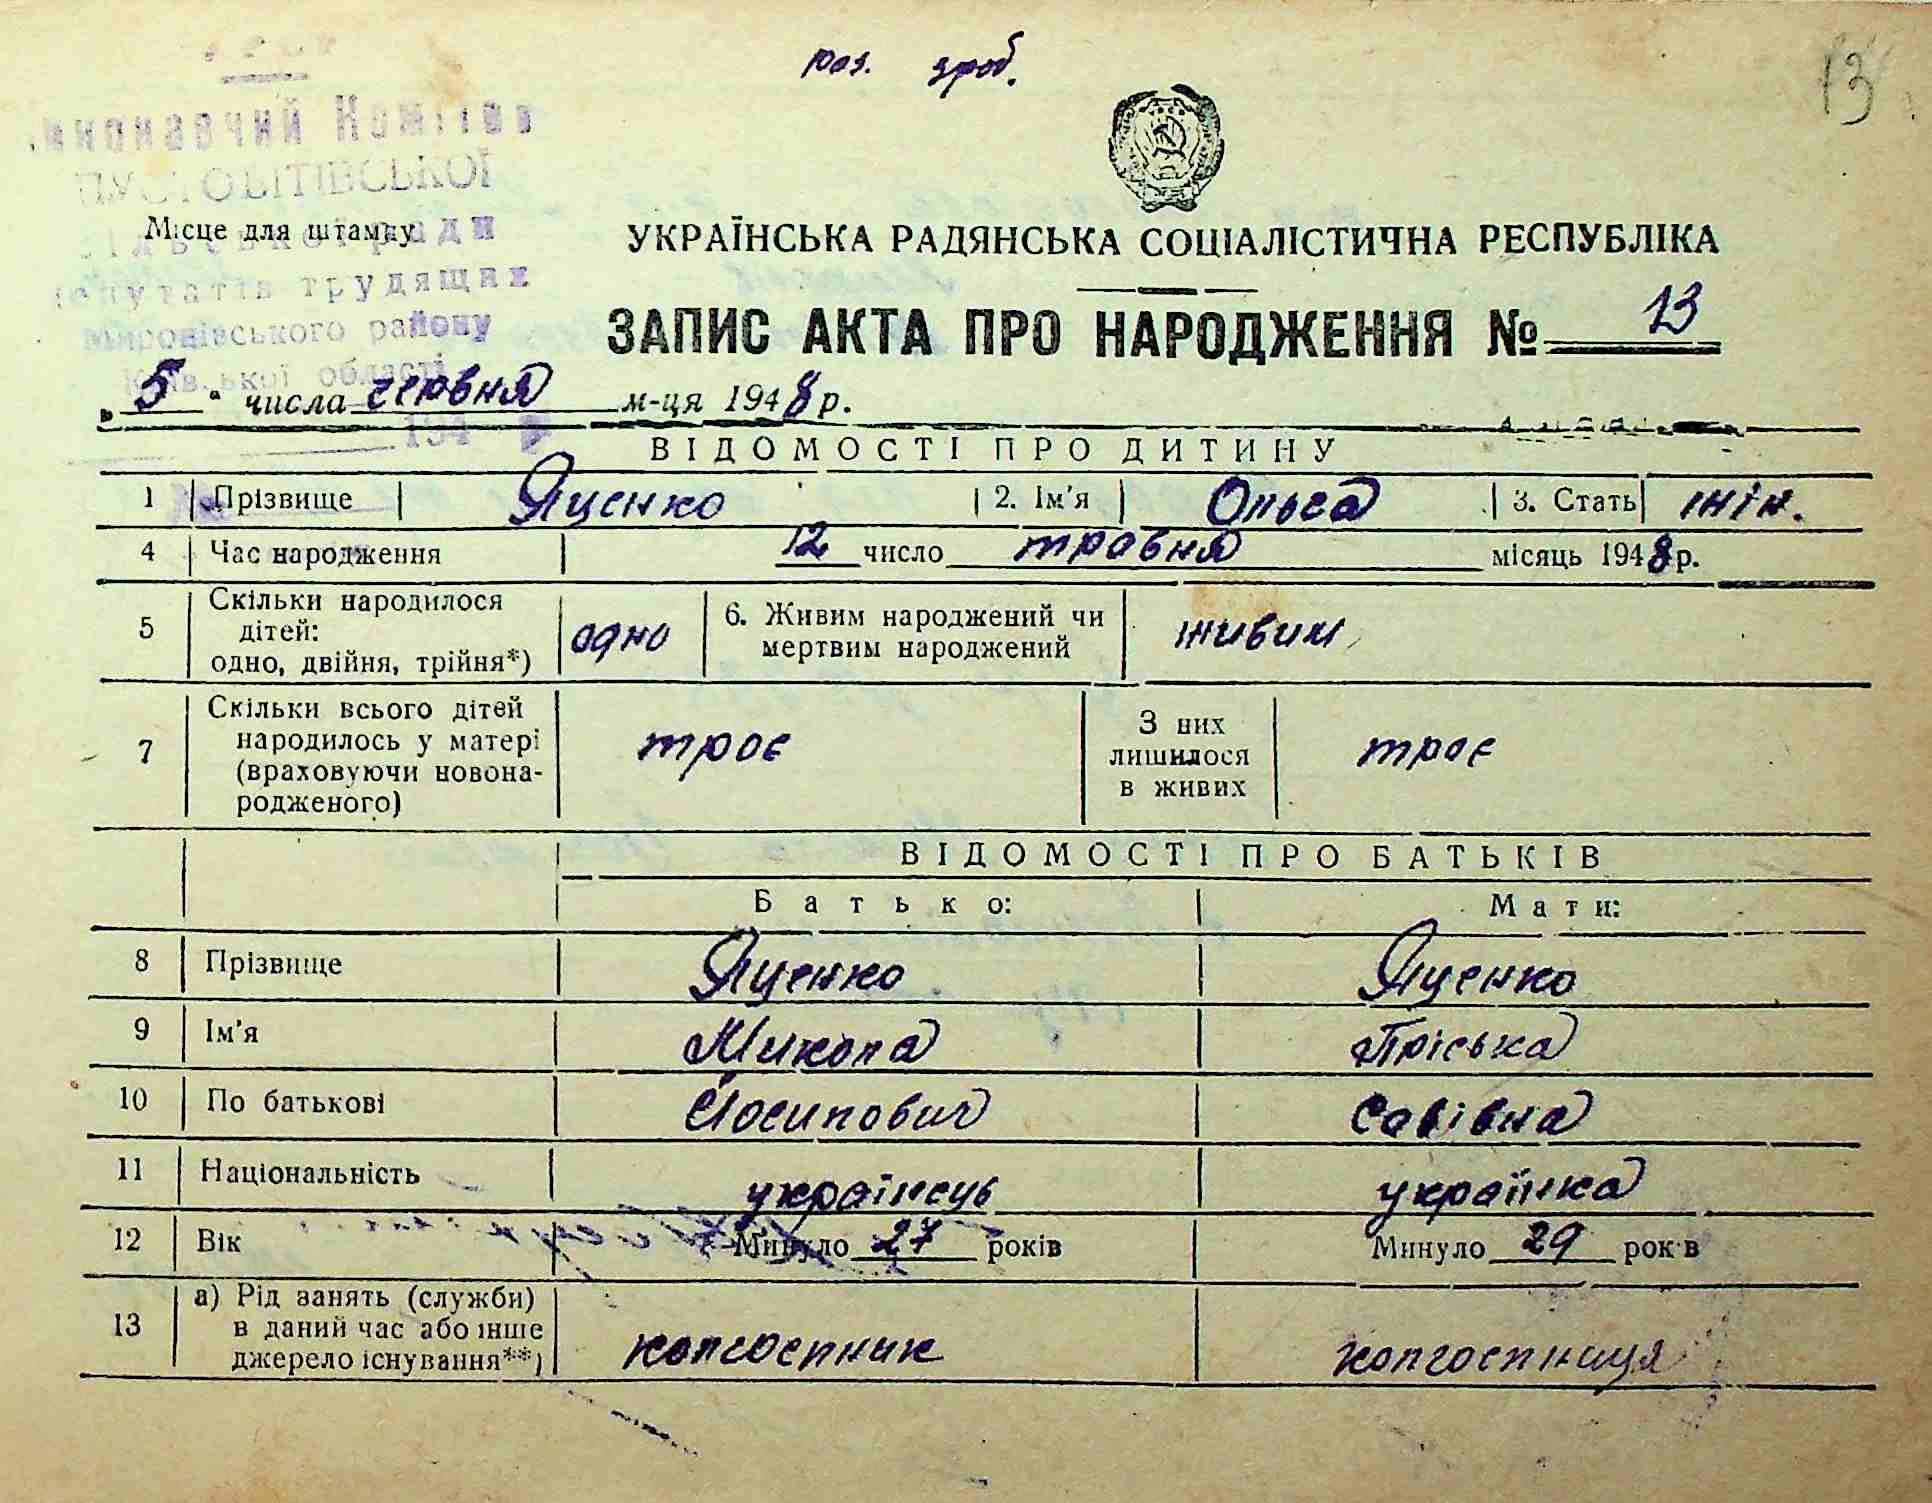 роз. зроб.
13
Виконавчий Комітет
ПУСТОВІТІВСЬКОЇ
сільської ради
депутатів трудящих
Миронівського району
Київської області
194
Місце для штампу
УКРАЇНСЬКА РАДЯНСЬКА СОЦІАЛІСТИЧНА РЕСПУБЛІКА
ЗАПИС АКТА ПРО НАРОДЖЕННЯ № 13
„5" числа червня м-ця 1948 р.
ВІДОМОСТІ ПРО ДИТИНУ
1 Прізвище Яценко 2. Ім'я Ольга 3. Стать жін.
4 Час народження 12 число травня місяць 1948 р.
5 Скільки народилося дітей: одно, двійня, трійня*) одно 6. Живим народжений чи мертвим народжений живим
7 Скільки всього дітей народилось у матері (враховуючи новонародженого) троє З них лишилося в живих троє
ВІДОМОСТІ ПРО БАТЬКІВ
Батько: Мати:
8 Прізвище Яценко Яценко
9 Ім'я Микола Пріська
10 По батькові Йосипович Савівна
11 Національність українець українка
12 Вік Минуло 27 років Минуло 29 років
13 а) Рід занять (служби) в даний час або інше джерело існування**) колгоспник колгоспниця